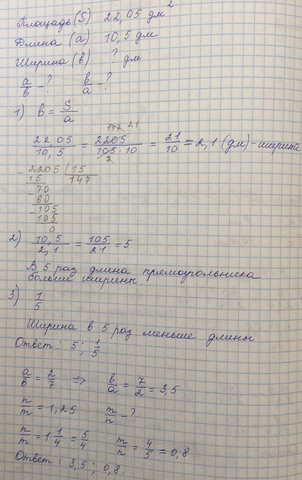 Площадь (S) 22,05 дм²
Длина (a) 10,5 дм
Ширина (в) ? дм
a/в - ? в/a ?
1) в = S/a
147 21
22,05/10,5 = 2205/105·10 = 21/10 = 2,1 (дм) - ширина
7
2205 | 15
15 147
70
60
105
105
0
2) 10,5/2,1 = 105/21 = 5
В 5 раз длина прямоугольника
больше ширины
3) 1/5
Ширина в 5 раз меньше длины
Ответ: 5; 1/5
a/в = 2/7 => в/a = 7/2 = 3,5
n/m = 1,25 m/n - ?
n/m = 1 1/4 = 5/4 m/n = 4/5 = 0,8
Ответ: 3,5; 0,8